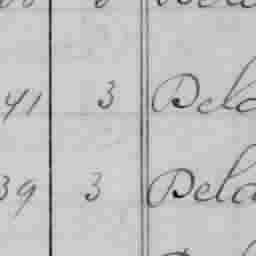 41 3 Dela
39 3 Dela